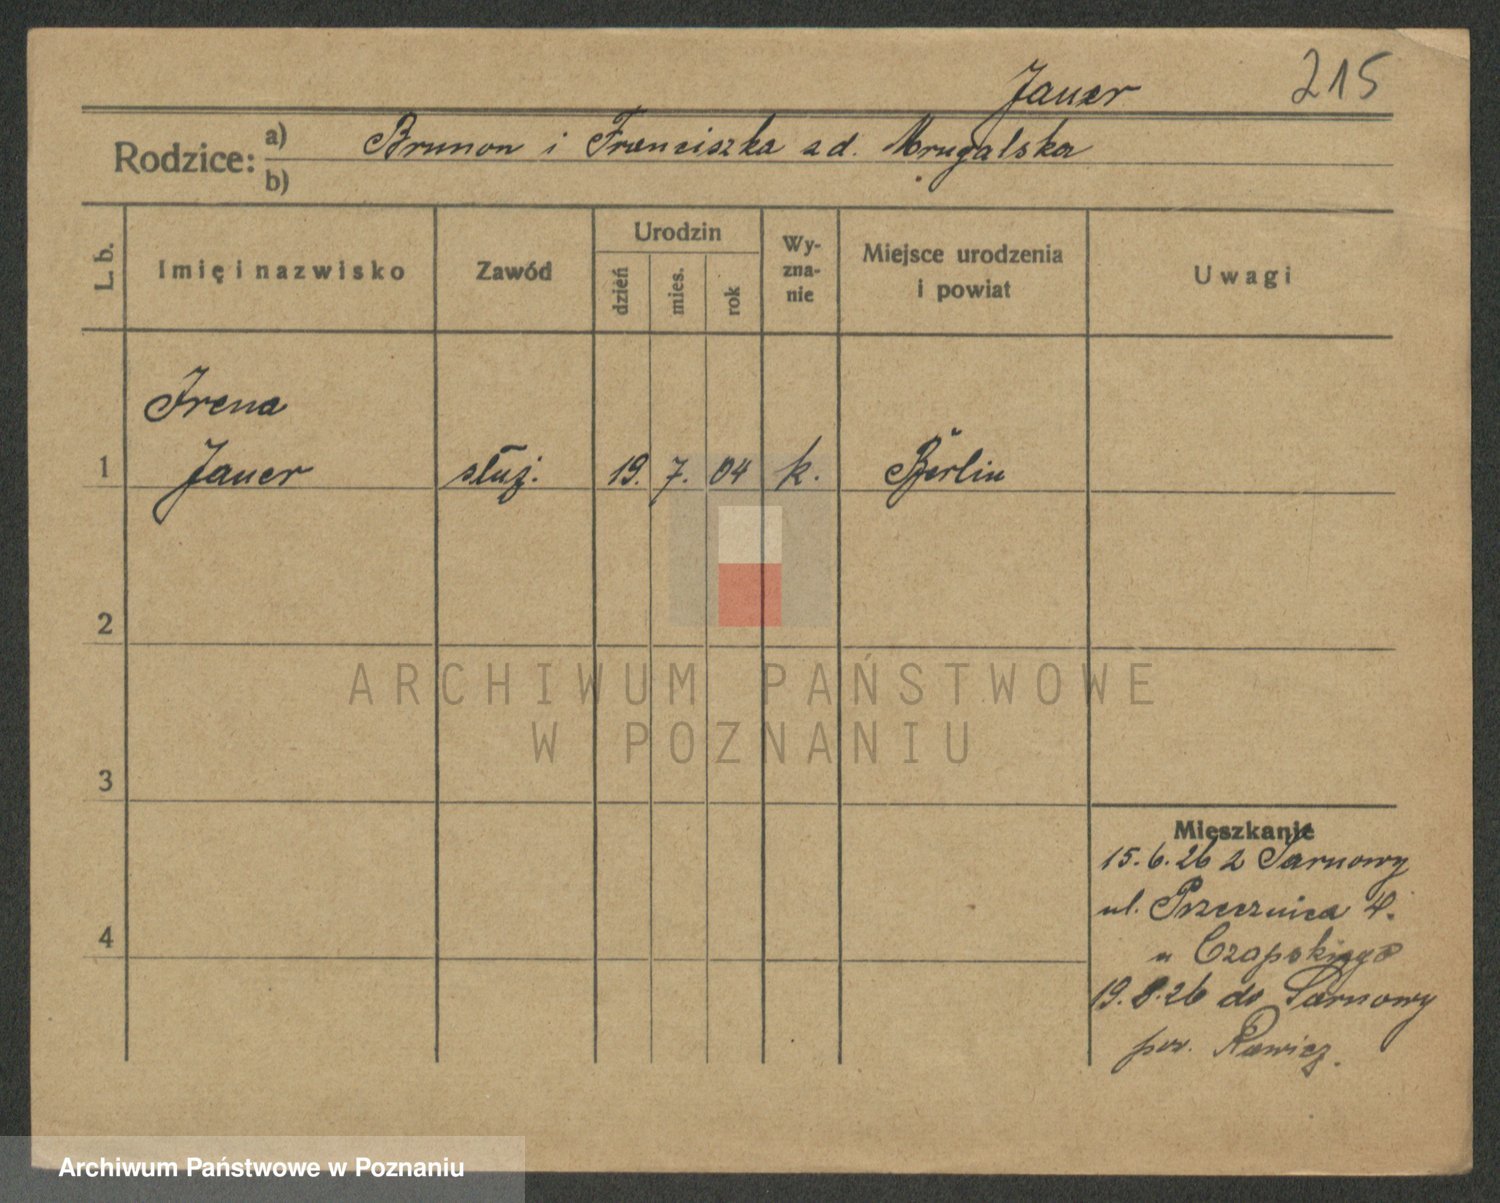 Jauer 215
Rodzice: a) Brunon i Franciszka zd. Mrugalska
b)
L. b. Imię i nazwisko Zawód Urodzin dzień mies. rok Wy-zna-nie Miejsce urodzenia i powiat Uwagi
Irena
1 Jauer służ. 19. 7. 04 k. Berlin
2
3
4
Mieszkanie
15.6.26 z Sarnowy
ul. Przecznica 4.
u Czapskiego
19.8.26 do Sarnowy
pow. Rawicz.
ARCHIWUM PAŃSTWOWE
W POZNANIU
Archiwum Państwowe w Poznaniu